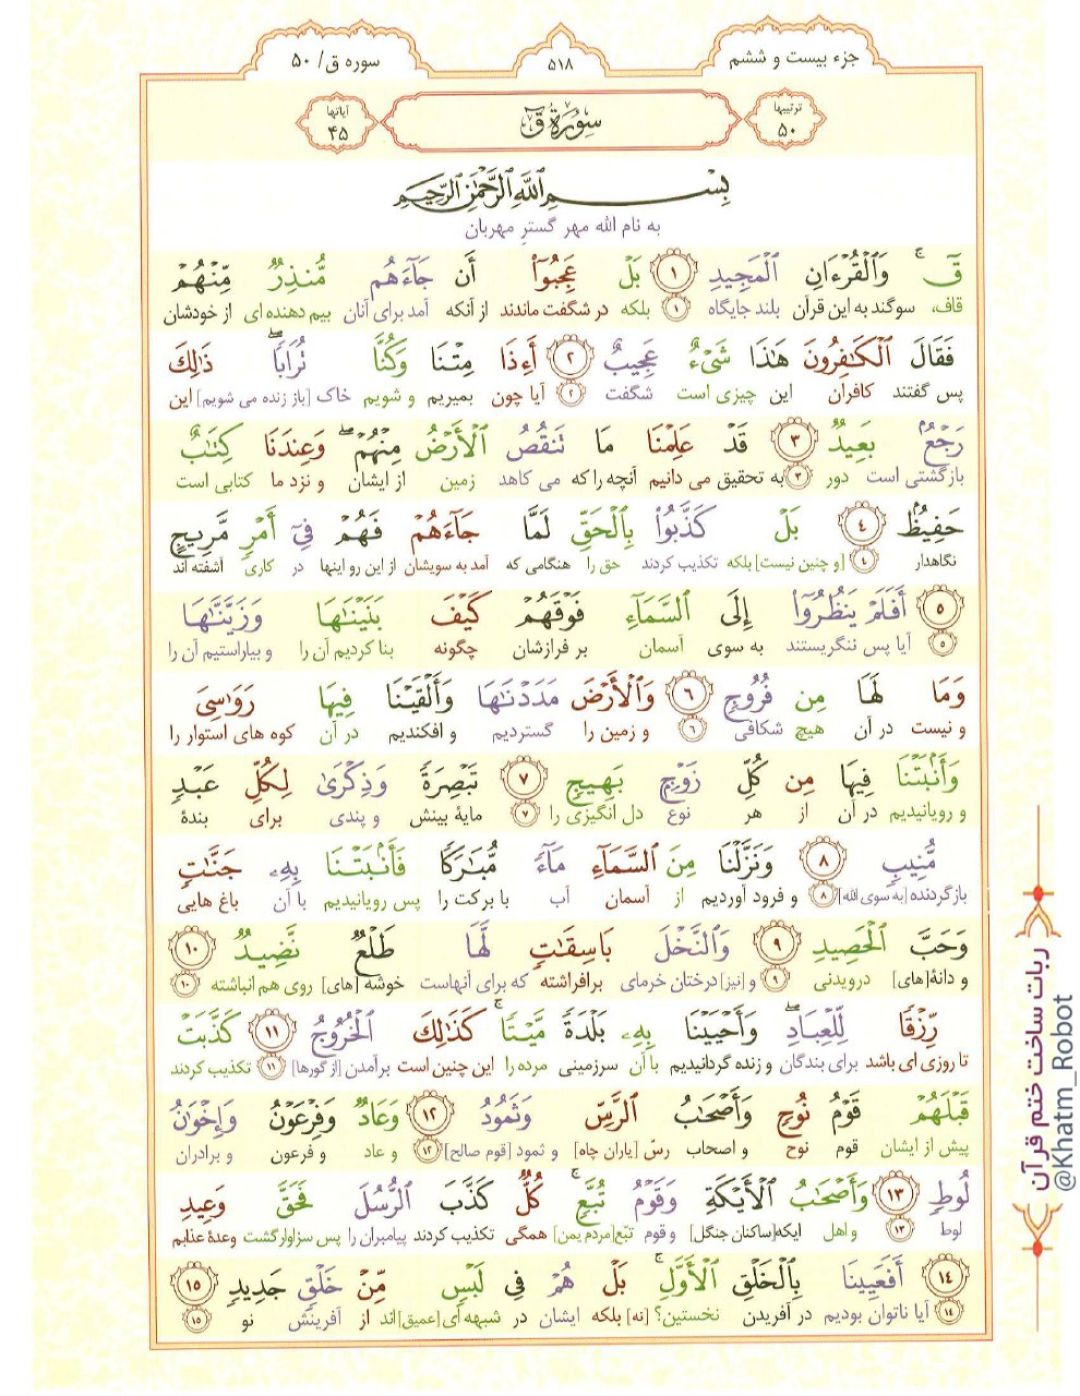 جزء بیست و ششم
۵۱۸
سوره ق/ ۵۰
ترتیبها
۵۰
سُورَةُ قٓ
آیاتها
۴۵
بِسْمِ ٱللَّهِ ٱلرَّحْمَٰنِ ٱلرَّحِيمِ
به نام الله مهر گسترِ مهربان
قٓ ۚ وَٱلْقُرْءَانِ ٱلْمَجِيدِ ١ بَلْ عَجِبُوٓا۟ أَن جَآءَهُم مُّنذِرٌ مِّنْهُمْ
قاف، سوگند به این قرآن بلند جایگاه ١ بلکه در شگفت ماندند از آنکه آمد برای آنان بیم دهنده ای از خودشان
فَقَالَ ٱلْكَٰفِرُونَ هَٰذَا شَىْءٌ عَجِيبٌ ٢ أَءِذَا مِتْنَا وَكُنَّا تُرَابًا ۖ ذَٰلِكَ
پس گفتند کافران این چیزی است شگفت ٢ آیا چون بمیریم و شویم خاک [باز زنده می شویم] این
رَجْعٌۢ بَعِيدٌ ٣ قَدْ عَلِمْنَا مَا تَنقُصُ ٱلْأَرْضُ مِنْهُمْ ۖ وَعِندَنَا كِتَٰبٌ
بازگشتی است دور ٣ به تحقیق می دانیم آنچه را که می کاهد زمین از ایشان و نزد ما کتابی است
حَفِيظٌۢ ٤ بَلْ كَذَّبُوا۟ بِٱلْحَقِّ لَمَّا جَآءَهُمْ فَهُمْ فِىٓ أَمْرٍ مَّرِيجٍ
نگاهدار ٤ [و چنین نیست] بلکه تکذیب کردند حق را هنگامی که آمد به سویشان از این رو اینها در کاری آشفته اند
٥ أَفَلَمْ يَنظُرُوٓا۟ إِلَى ٱلسَّمَآءِ فَوْقَهُمْ كَيْفَ بَنَيْنَٰهَا وَزَيَّنَّٰهَا
٥ آیا پس ننگریستند به سوی آسمان بر فرازشان چگونه بنا کردیم آن را و بیاراستیم آن را
وَمَا لَهَا مِن فُرُوجٍ ٦ وَٱلْأَرْضَ مَدَدْنَٰهَا وَأَلْقَيْنَا فِيهَا رَوَٰسِىَ
و نیست در آن هیچ شکافی ٦ و زمین را گستردیم و افکندیم در آن کوه های استوار را
وَأَنۢبَتْنَا فِيهَا مِن كُلِّ زَوْجٍۭ بَهِيجٍ ٧ تَبْصِرَةً وَذِكْرَىٰ لِكُلِّ عَبْدٍ
و رویانیدیم در آن از هر نوع دل انگیزی را ٧ مایهٔ بینش و پندی برای بندهٔ
مُّنِيبٍ ٨ وَنَزَّلْنَا مِنَ ٱلسَّمَآءِ مَآءً مُّبَٰرَكًا فَأَنۢبَتْنَا بِهِۦ جَنَّٰتٍ
بازگردنده [به سوی الله] ٨ و فرود آوردیم از آسمان آب با برکت را پس رویانیدیم با آن باغ هایی
وَحَبَّ ٱلْحَصِيدِ ٩ وَٱلنَّخْلَ بَاسِقَٰتٍ لَّهَا طَلْعٌ نَّضِيدٌ ١٠
و دانهٔ[های] درویدنی ٩ و [نیز] درختان خرمای برافراشته که برای آنهاست خوشه [های] روی هم انباشته ١٠
رِّزْقًا لِّلْعِبَادِ ۖ وَأَحْيَيْنَا بِهِۦ بَلْدَةً مَّيْتًا ۚ كَذَٰلِكَ ٱلْخُرُوجُ ١١ كَذَّبَتْ
تا روزی ای باشد برای بندگان و زنده گردانیدیم با آن سرزمینی مرده را این چنین است برآمدن [از گورها] ١١ تکذیب کردند
قَبْلَهُمْ قَوْمُ نُوحٍ وَأَصْحَٰبُ ٱلرَّسِّ وَثَمُودُ ١٢ وَعَادٌ وَفِرْعَوْنُ وَإِخْوَٰنُ
پیش از ایشان قوم نوح و اصحاب رسّ [یاران چاه] و ثمود [قوم صالح] ١٢ و عاد و فرعون و برادران
لُوطٍ ١٣ وَأَصْحَٰبُ ٱلْأَيْكَةِ وَقَوْمُ تُبَّعٍ ۚ كُلٌّ كَذَّبَ ٱلرُّسُلَ فَحَقَّ وَعِيدِ
لوط ١٣ و اهل ایکه[ساکنان جنگل] و قوم تبّع[مردم یمن] همگی تکذیب کردند پیامبران را پس سزاوار گشت وعدهٔ عذابم
١٤ أَفَعَيِينَا بِٱلْخَلْقِ ٱلْأَوَّلِ ۚ بَلْ هُمْ فِى لَبْسٍ مِّنْ خَلْقٍ جَدِيدٍ ١٥
١٤ آیا ناتوان بودیم در آفریدن نخستین؟ [نه] بلکه ایشان در شبهه ای [عمیق]اند از آفرینش نو ١٥
ربات ساخت ختم قرآن
@Khatm_Robot